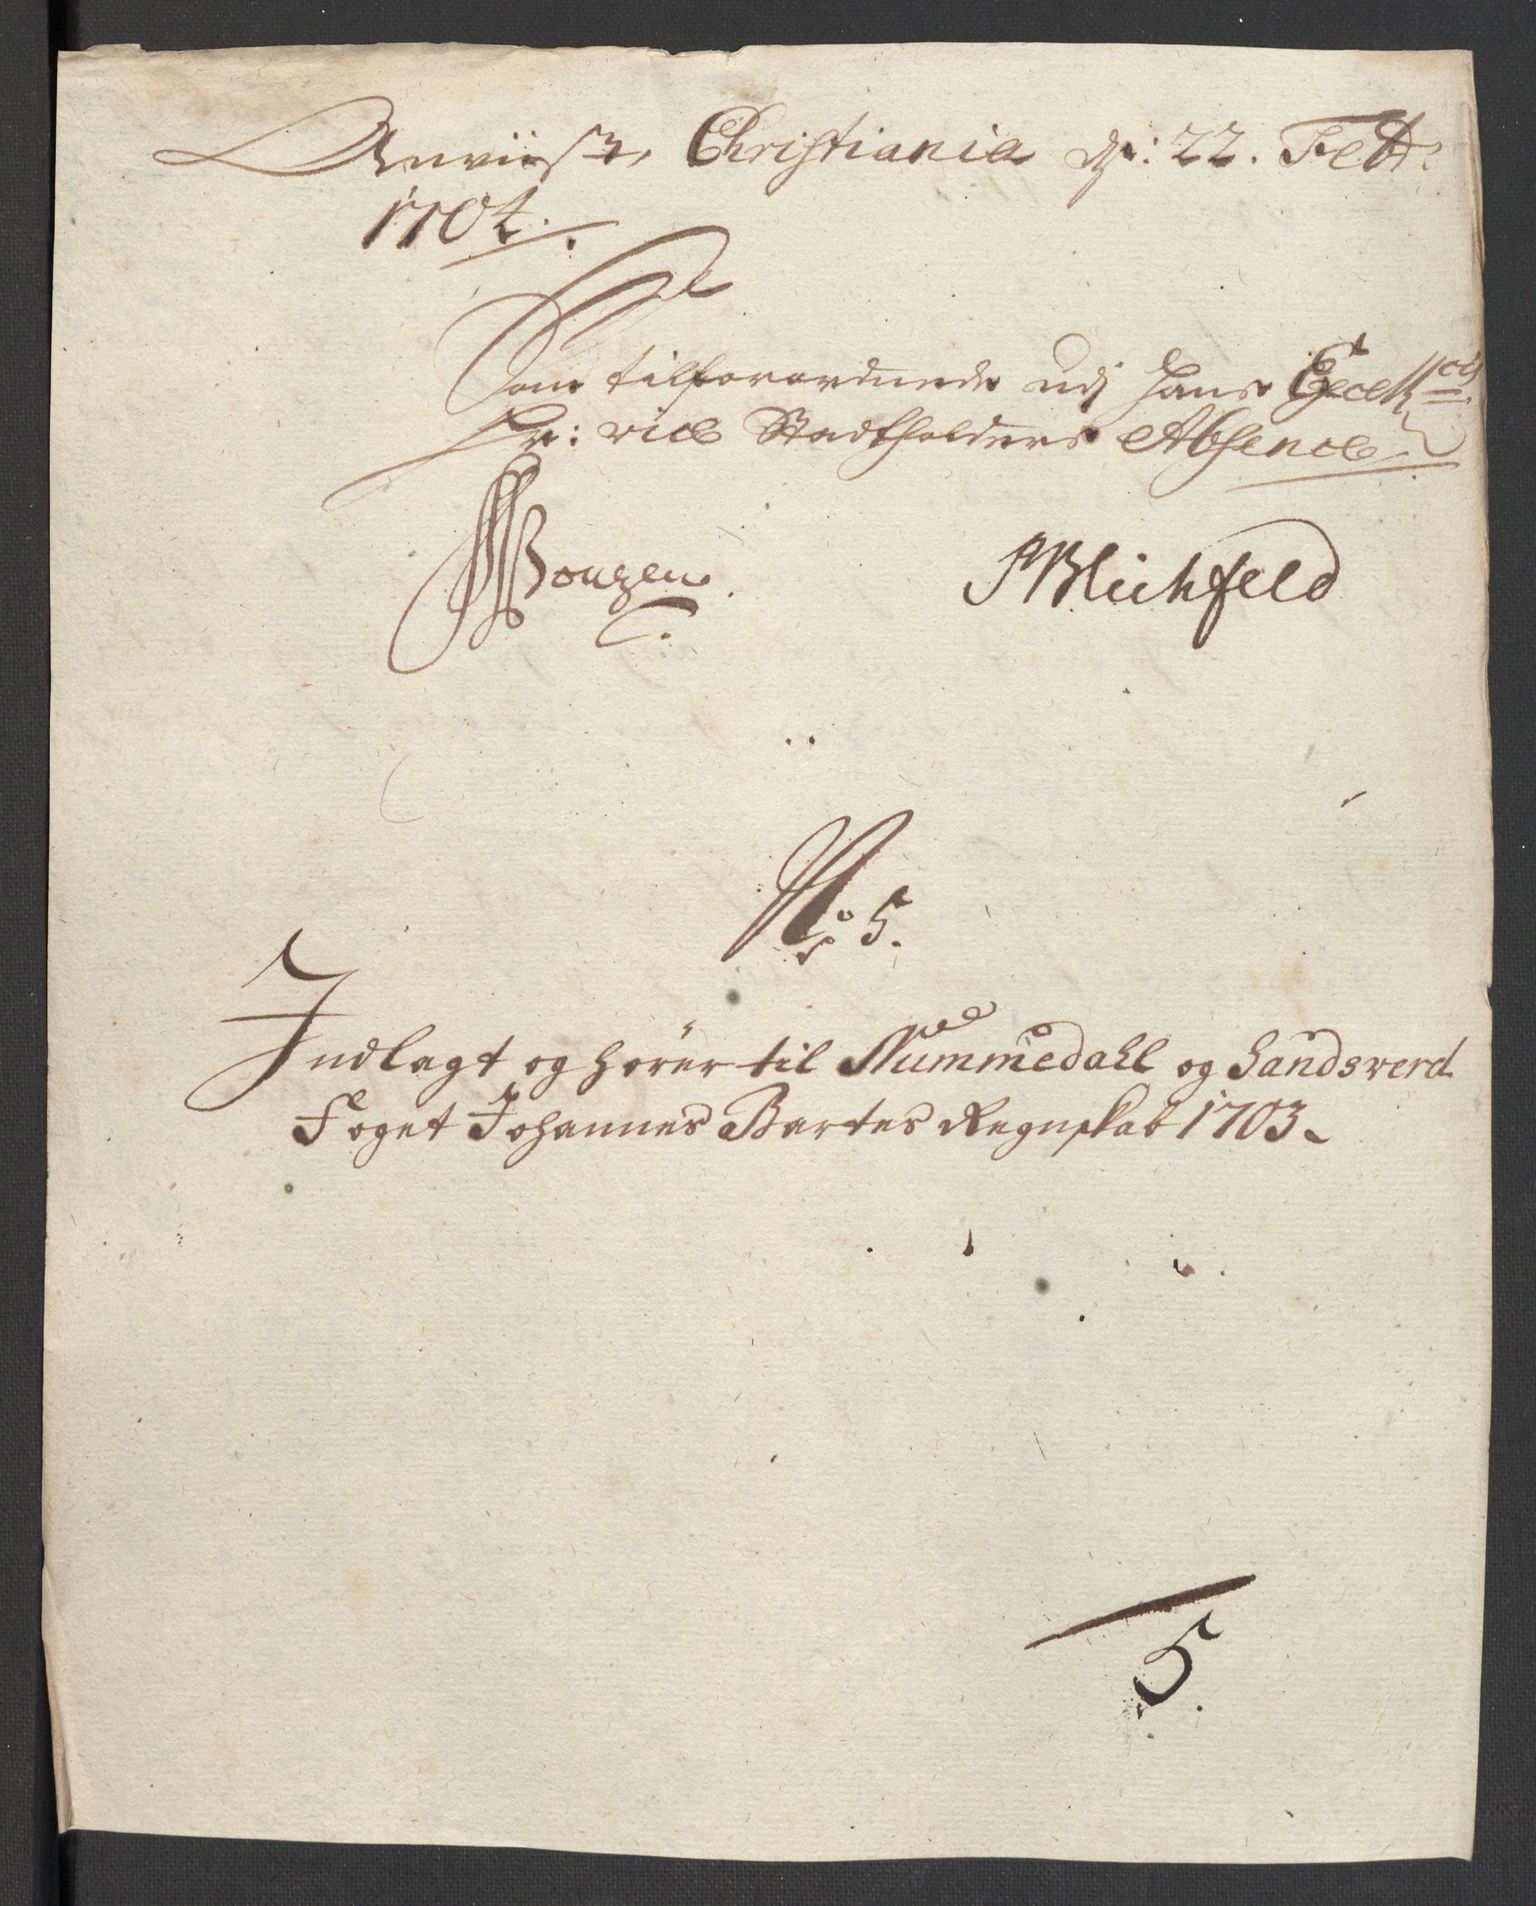 Anviist, Christiania dn: 22. Febr:
1704.
Som tilforordnede udj Hans Excell:
Hr: vice Stadtholders Absence
Bougen
PBlichfeld
No 5.
Indlagt og hörer til Nummedahl og Sandsverd
Foget Johannes Bartes Regnskab 1703.
5.